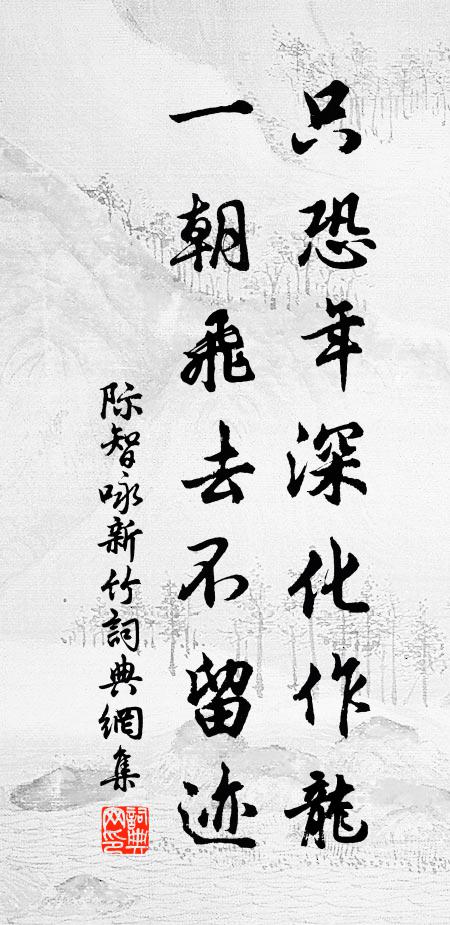 只恐年深化作龍
一朝飛去不留迹
际智咏新竹詞典網集
詞典
网印